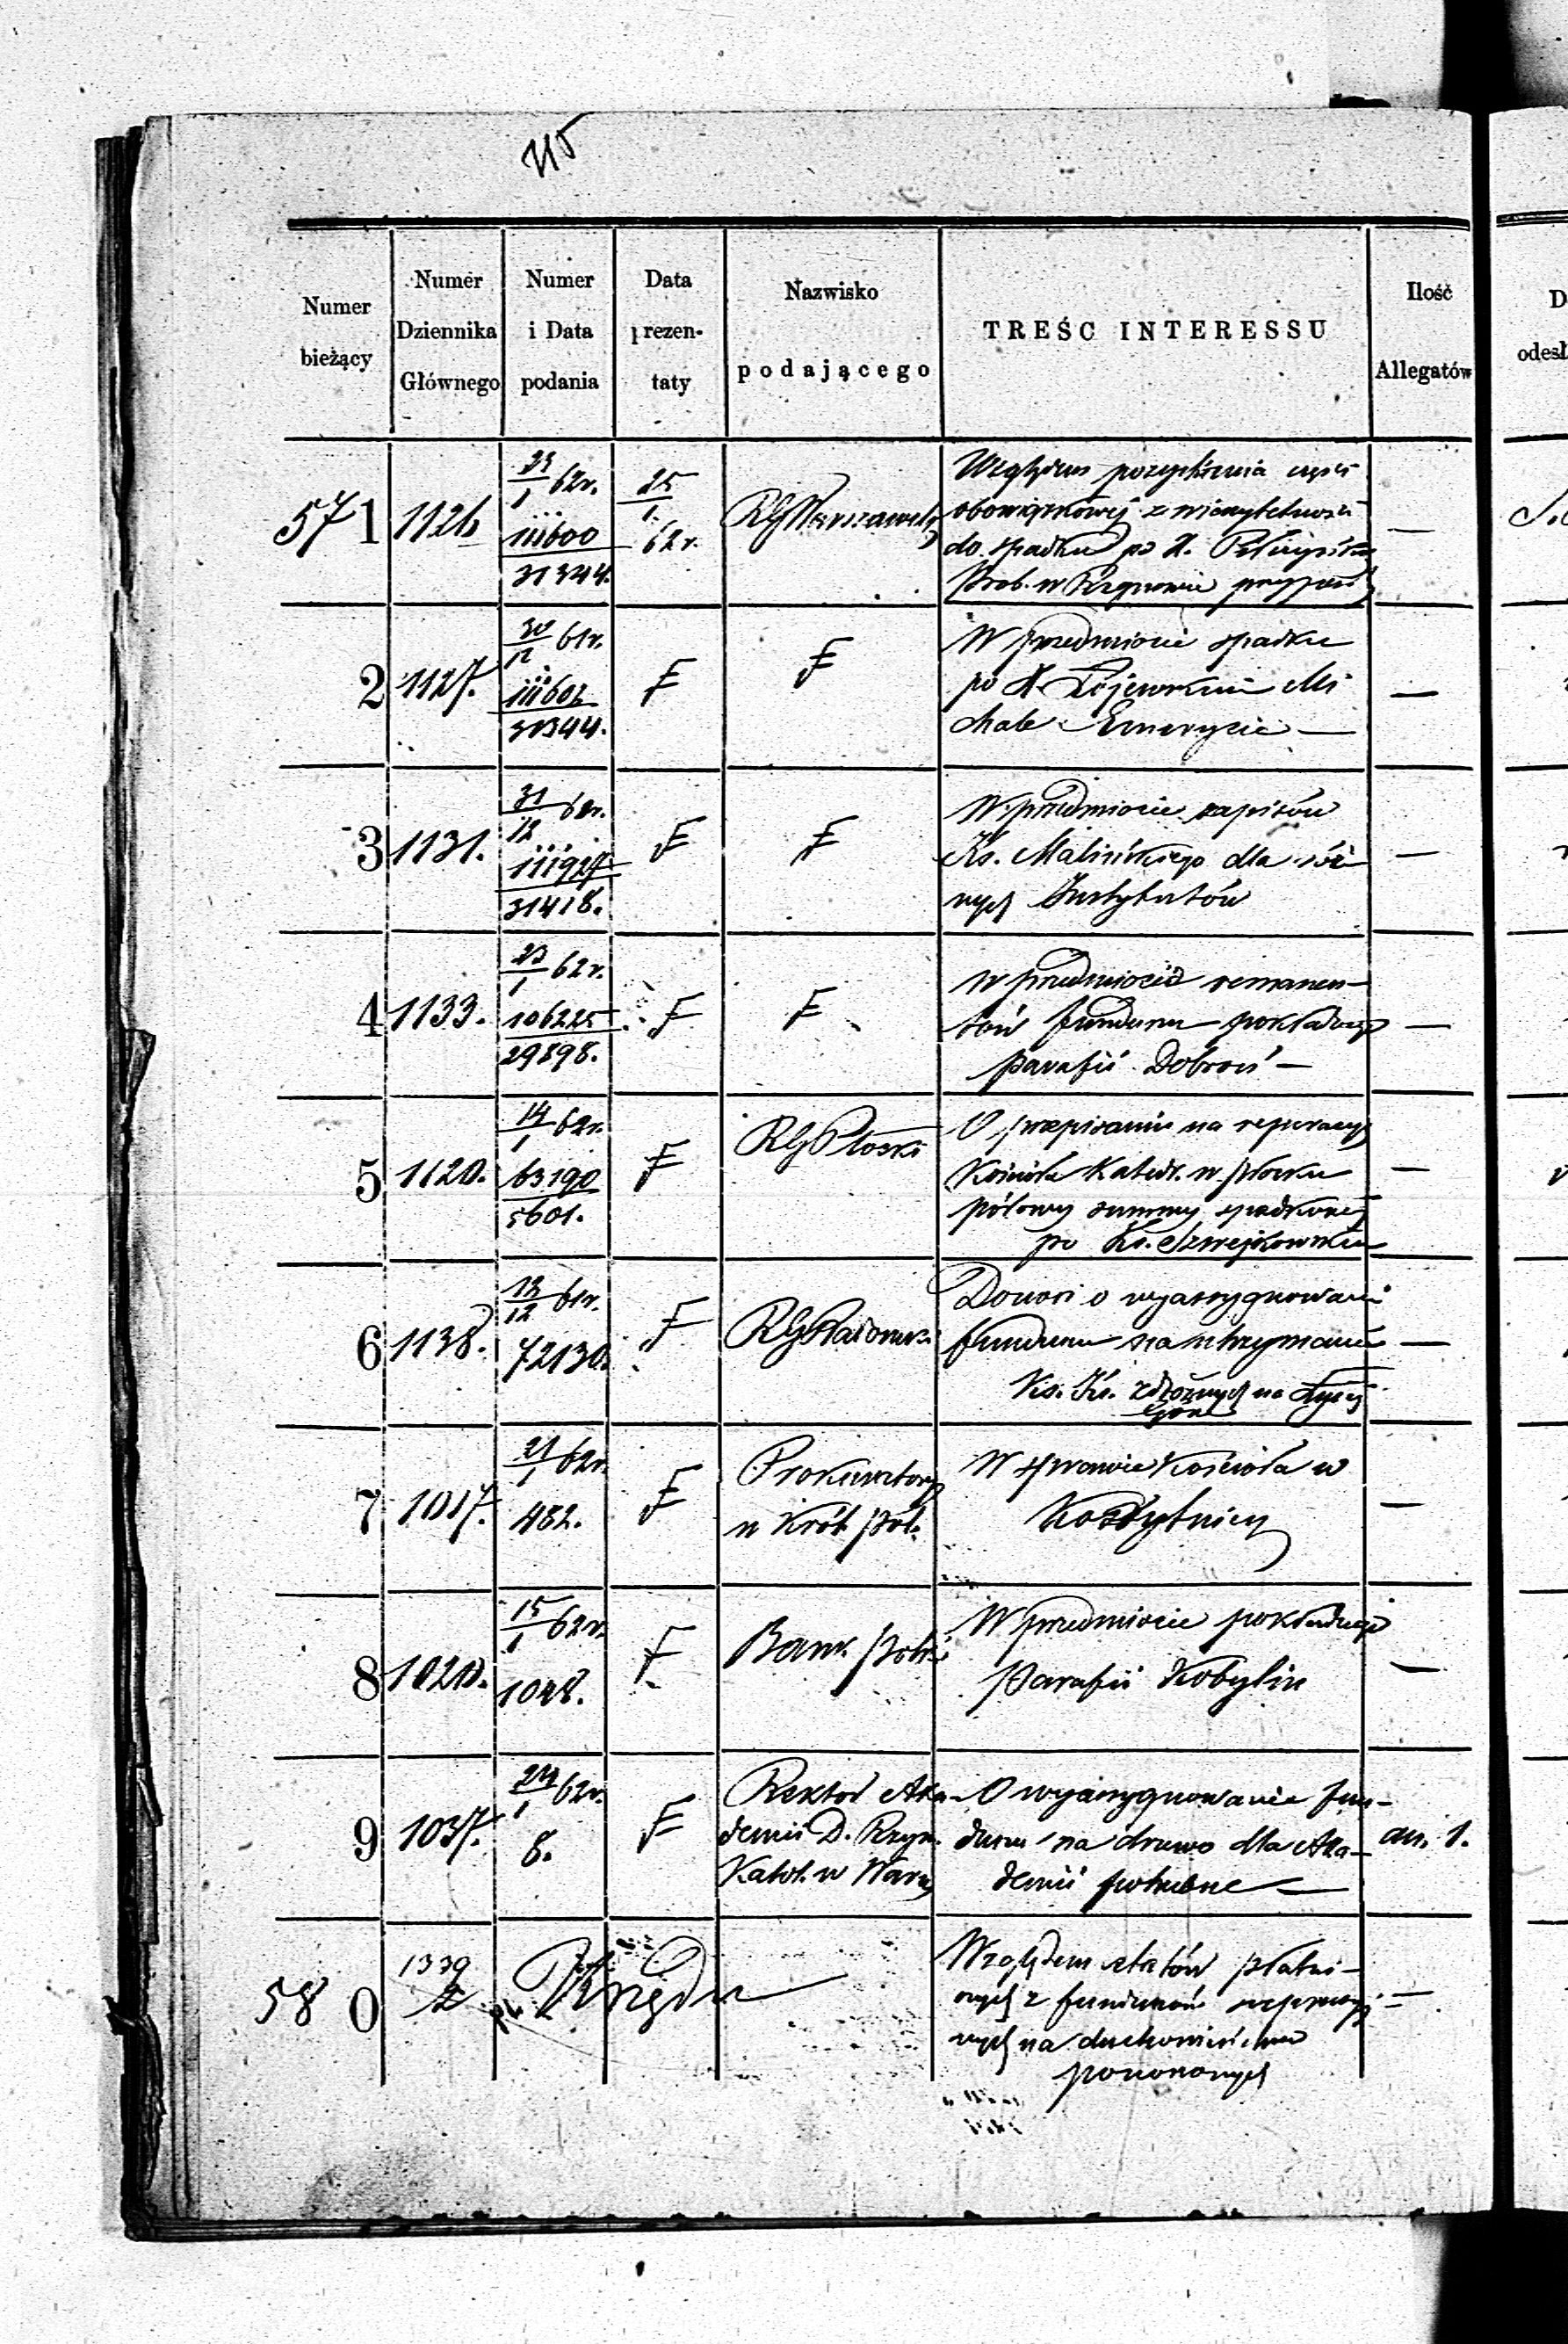 715
Numer bieżący
Numer Dziennika Głównego
Numer i Data podania
Data prezentaty
Nazwisko podającego
TREŚC INTERESSU
Ilość Allegatów
571
1126
23/1 62r.
111600
31344.
25/1 62r.
RG Warszawski
Względem pozyskania części
obowiązkowej z
do spadku po X.
Prob. w
—
2
1127.
30/12 61r.
111602
31344.
F
F
W przedmiocie spadku
po X. Łojewskim Mi
chale Emerycie —
—
3
1131.
31/12 61r.
111927
31418.
F
F
W przedmiocie zapisów
Ks. Malińskiego dla róż
nych Instytutów
—
4
1133.
23/1 62r.
106225
29898.
F
F
W przedmiocie remanen-
tów funduszu pokładnego
parafii Dobroń —
—
5
1120.
14/1 62r.
63190
5601.
F
RG Płocki
O przepisanie na reperacyą
Kościoła Katedr. w Płocku
połowy summy spadkowej
po Ks. Szwejkowskim
—
6
1138.
13/12 61r.
72130.
F
RG Radomski
Donosi o wyassygnowaniu
funduszu na utrzymanie
Ks. Ks. zdrożnych na Łysej
Górze
—
7
1017.
21/1 62r.
482.
F
Prokuratorya
w Król. Pol.
W sprawie Kościoła w
—
8
1020.
15/1 62r.
1048.
F
Bank Polski
W przedmiocie pokładnego
Parafii Kobylin
—
9
1037.
24/1 62r.
8.
F
Rektor Aka-
demii D. Rzym.
Katol. w Warsz.
O wyassygnowanie fun-
duszu na drzewo dla Aka-
demii potrzebne —
an. 1.
580
1339
z Urzędu
Względem etatów płatni-
czych z funduszów
nych na duchowieństwo
ponoszonych
—